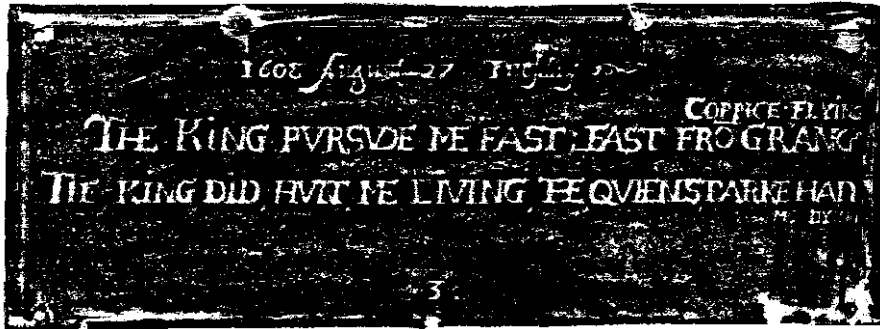 1608 August 27 Tuesday
COPPICE FLYIN
THE KING PVRSVDE ME FAST FRO GRANG
THE KING DID HVNT ME LIVING THE QVIENS PARKE HAD
M DY
3